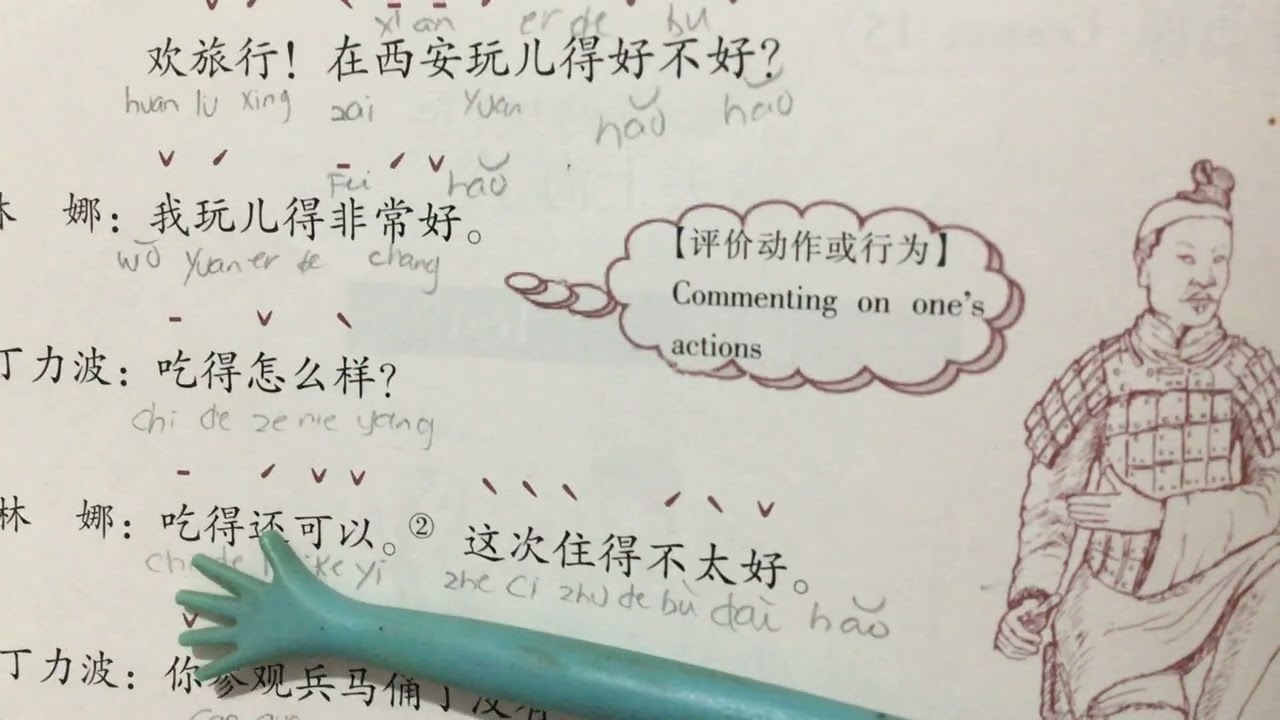 xi an er de bu
欢旅行！在西安玩儿得好不好？
huan lu xing zai yuan hǎo hǎo
Fei hǎo
林 娜：我玩儿得非常好。
wǒ yuan er de chang
【评价动作或行为】
Commenting on one's
actions
丁力波：吃得怎么样？
chi de ze me yang
林 娜：吃得还可以。② 这次住得不太好。
ke yi zhe ci zhu de bù dài hǎo
丁力波：你参观兵马俑了没有